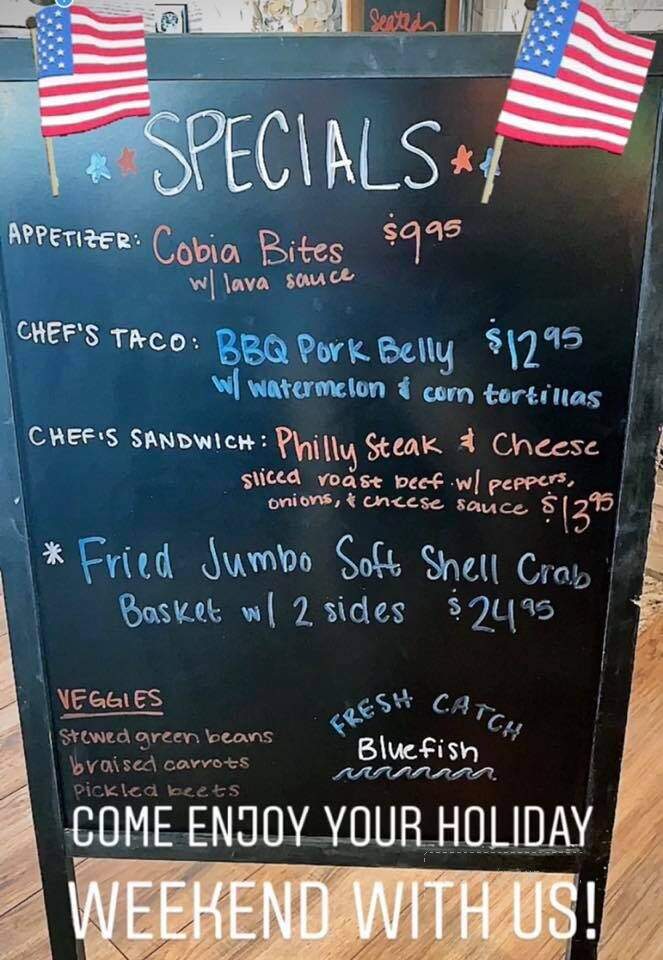 Seated
SPECIALS
APPETIZER: Cobia Bites $9.95
w/ lava sauce
CHEF'S TACO: BBQ Pork Belly $12.95
w/ watermelon & corn tortillas
CHEF'S SANDWICH: Philly Steak & Cheese
sliced roast beef w/ peppers,
onions, & cheese sauce $13.95
* Fried Jumbo Soft Shell Crab
Basket w/ 2 sides $24.95
VEGGIES
Stewed green beans
braised carrots
pickled beets
FRESH CATCH
Bluefish
COME ENJOY YOUR HOLIDAY
WEEKEND WITH US!